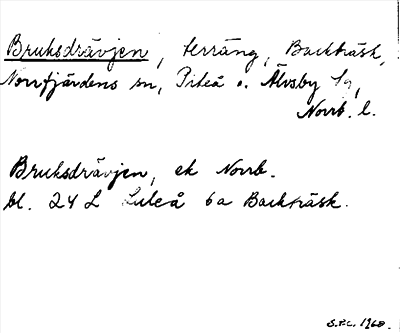 Bruksdrävjen, terräng, Backträsk,
Norrfjärdens sn, Piteå o. Älvsby tg,
Norrb. l.
Bruksdrävjen, ek Norrb.
bl. 24 L Luleå 6a Backträsk.
S.F.L. 1968.